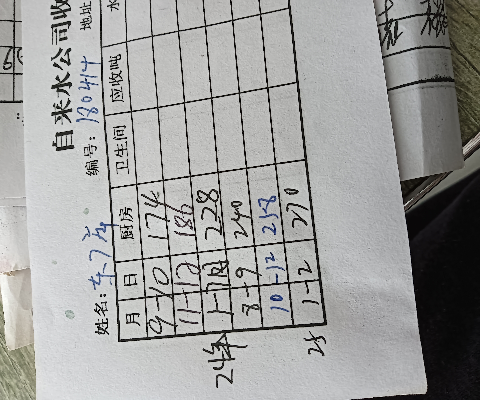 自来水公司收
编号: 180414 地址
姓名:
月 日 厨房 卫生间 应收吨 水
9-10 174
11-12 186
24年 1-7月 228
8-9 240
10-12 258
25 1-2 270